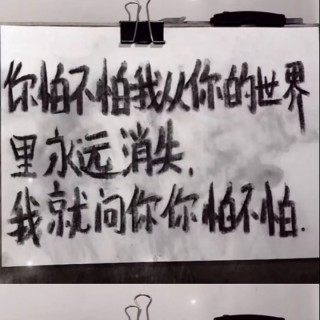 你怕不怕我从你的世界
里永远消失,
我就问你你怕不怕.